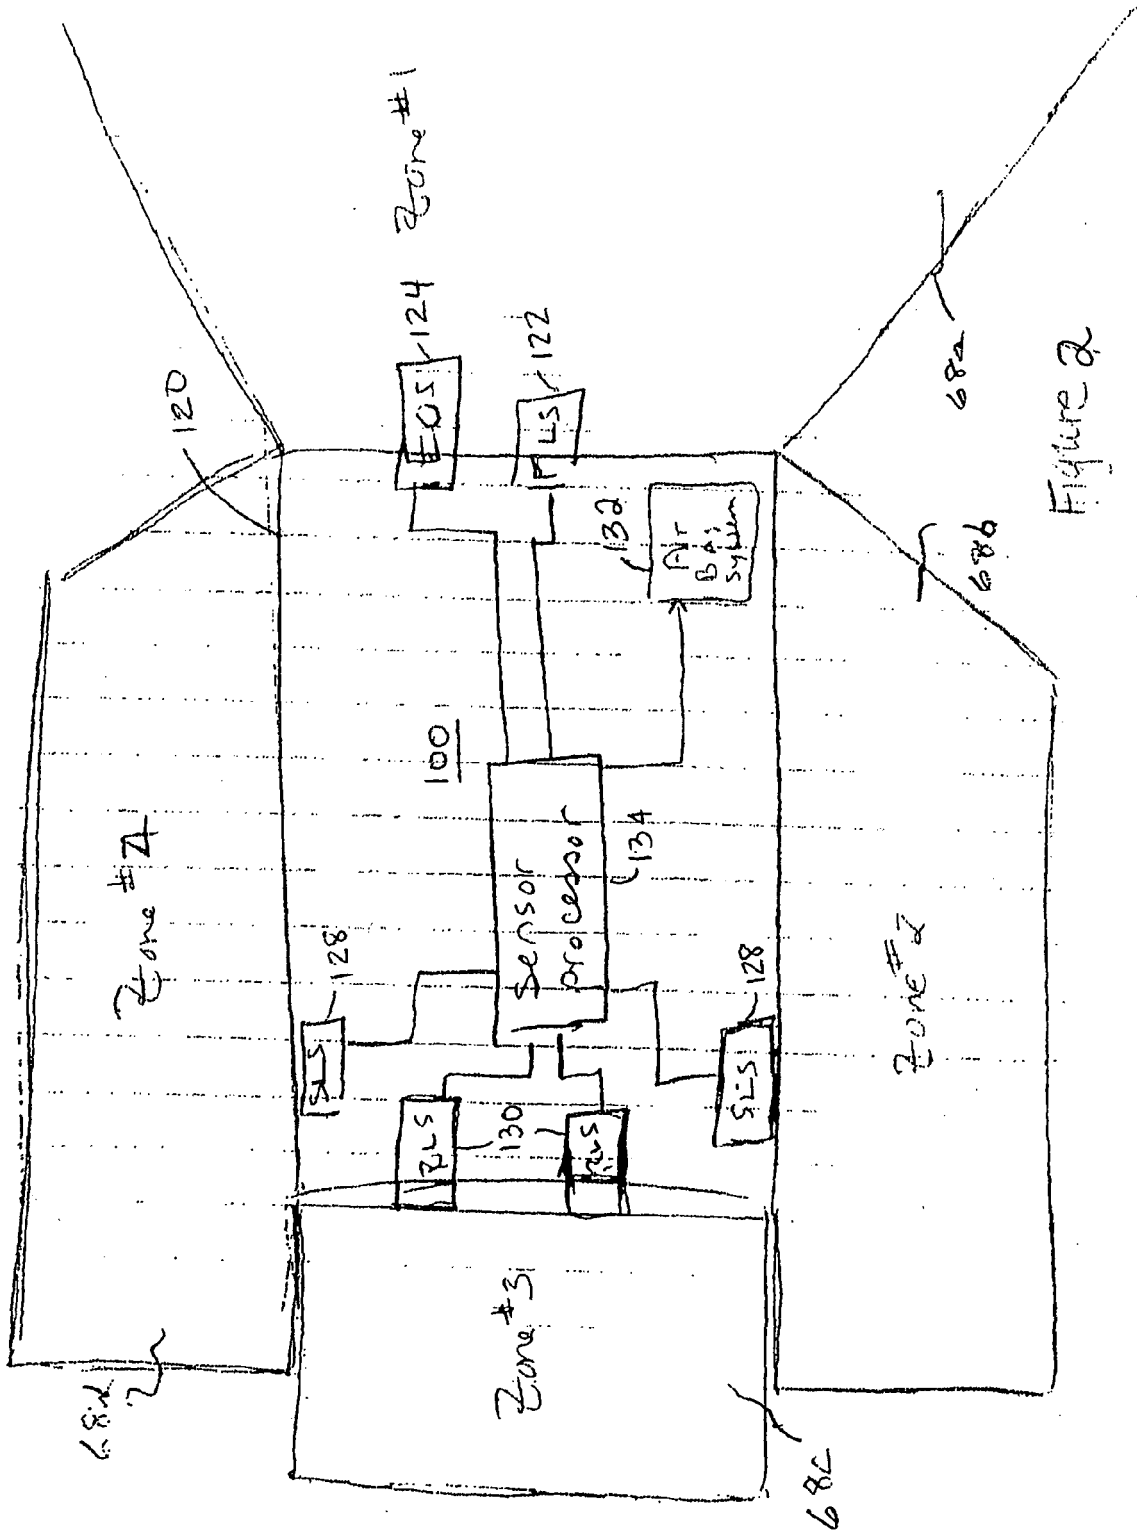 Zone #1
120
EOS
124
FLS
122
132
Air
Bag
System
100
Sensor
processor
134
Zone #4
128
SLS
128
SLS
RLS
130
RLS
Zone #2
Zone #3
68d
68c
68a
68b
Figure 2